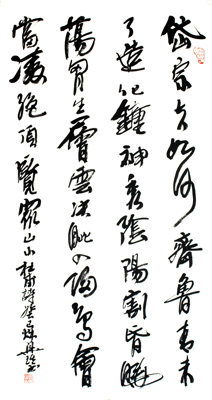 岱宗夫如何齊魯青未
了造化鐘神秀陰陽割昏曉
蕩胸生層雲決眥入歸鳥會
當凌絕頂覽眾山小杜甫詩癸巳